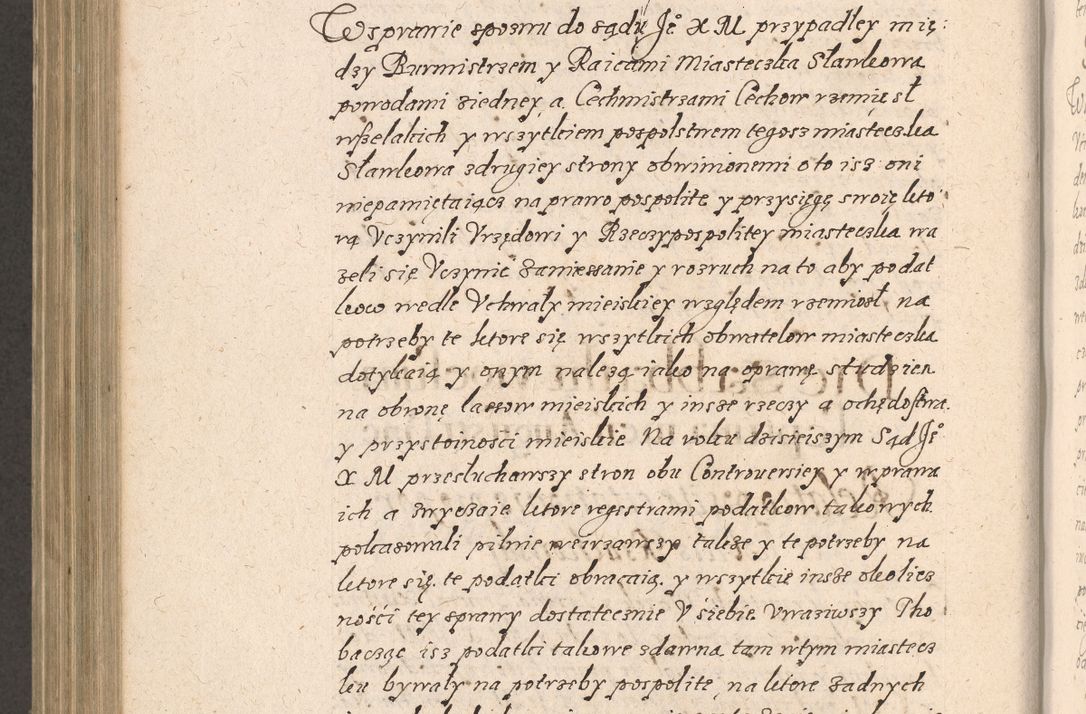 W sprawie sporu do sądu Je° X M przypadłey mię:
dzy Burmistrzem y Raicami Miasteczka Sławkowa
powodami ziedney a Cechmistrzami Cechow rzemięsł
wszelakich y wszytkiem pospolstwem tegosz miasteczka
Sławkowa zdrugiey strony obwinionemi o to isz oni
niepamiętaiącz na prawo pospolite y przysięgę swoię kto
rą Vczynili Vrzędowi y Rzeczypospolitey miasteczka wa
zeli się Vczynic zamiessanie y rozruch na to aby podat
kow wedle Vchwały mieiskiey względem rzemiosł na
potrzeby te ktore się wszytkich obwatelow miasteczka
dotykaią y onym należą iako na oprawę studzien
na obronę lassow mieiskich y insze rzeczy a ochędostwa
y przystoinosci mieiskie Na roku dzisieiszym Sąd Je°
X M przesłuchawszy stron obu Controuersiey y wprawa
ich a zwyczaie ktore regestrami podatkow takowych
pokazowali pilnie weirzawszy takze y te potrzeby na
ktore się te podatki obracaią y wszytkie insze okolicz
ności tey sprawy dostatecznie V siebie Vwaziwszy Tho
bacząc isz podatki takowe zdawna tam wtym miastecz
ku bywały na potrzeby pospolite na ktore zadnych